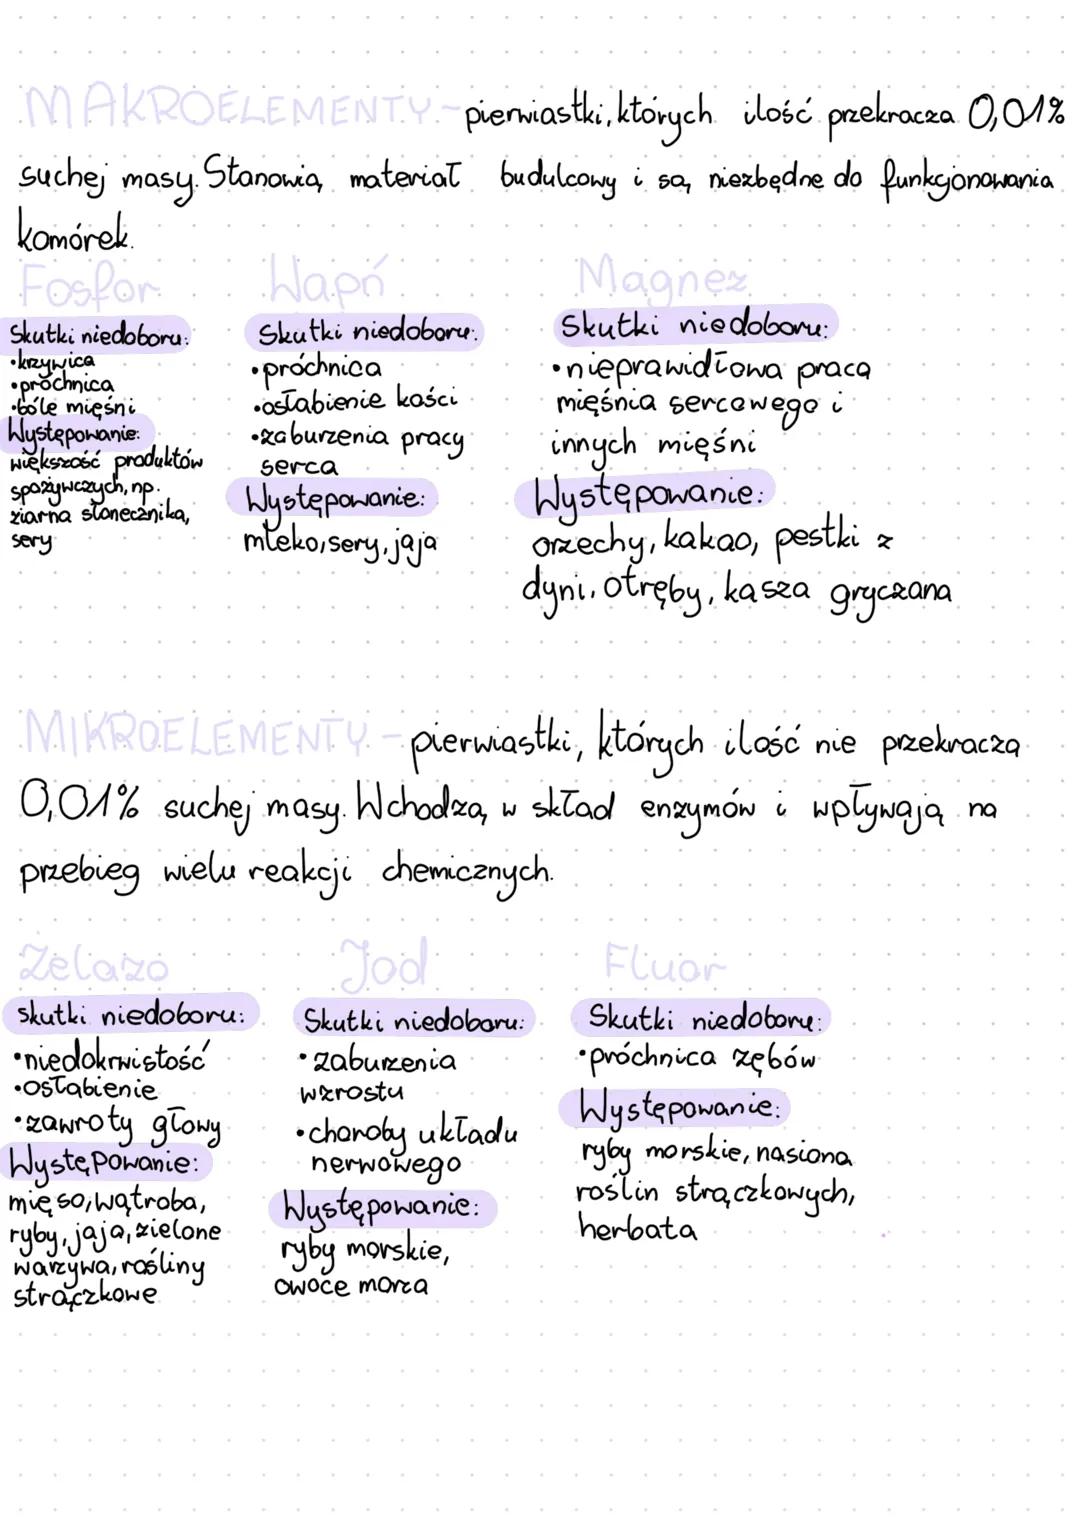 MAKROELEMENTY - pierwiastki, których ilość przekracza 0,01%
suchej masy. Stanowią materiał budulcowy i są niezbędne do funkcjonowania
komórek.
Fosfor
Skutki niedoboru:
•krzywica
•próchnica
•bóle mięśni
Występowanie:
większość produktów
spożywczych, np.
ziarna słonecznika,
sery
Wapń
Skutki niedoboru:
•próchnica
•osłabienie kości
•zaburzenia pracy
serca
Występowanie:
mleko, sery, jaja
Magnez
Skutki niedoboru:
•nieprawidłowa praca
mięśnia sercowego i
innych mięśni
Występowanie:
orzechy, kakao, pestki z
dyni, otręby, kasza gryczana
MIKROELEMENTY - pierwiastki, których ilość nie przekracza
0,01% suchej masy. Wchodzą w skład enzymów i wpływają na
przebieg wielu reakcji chemicznych.
Żelazo
skutki niedoboru:
•niedokrwistość
•osłabienie
•zawroty głowy
Występowanie:
mięso, wątroba,
ryby, jaja, zielone
warzywa, rośliny
strączkowe
Jod
Skutki niedoboru:
•zaburzenia
wzrostu
•choroby układu
nerwowego
Występowanie:
ryby morskie,
owoce morza
Fluor
Skutki niedoboru:
•próchnica zębów
Występowanie:
ryby morskie, nasiona
roślin strączkowych,
herbata